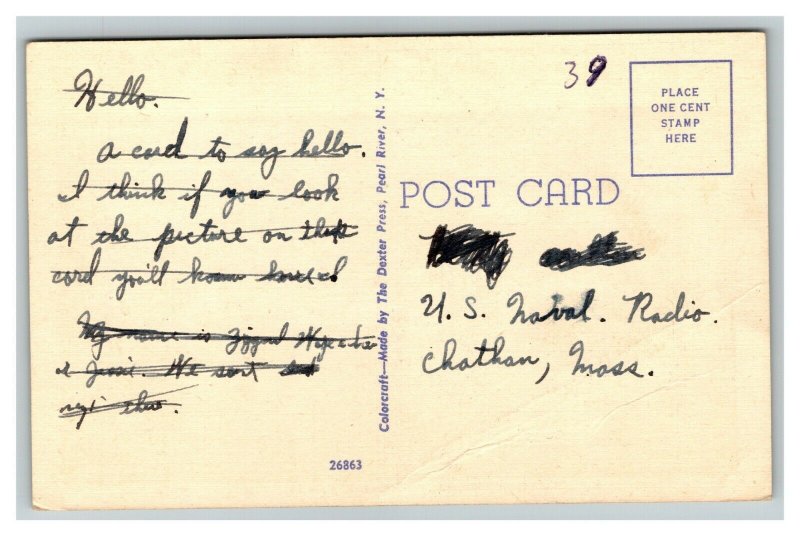 Hello.
A card to say hello.
I think if you look
at the picture on this
card you'll know how I
My name is
& Jessie. We sort
Colorcraft—Made by The Dexter Press, Pearl River, N. Y.
26863
39
PLACE
ONE CENT
STAMP
HERE
POST CARD
U. S. Naval. Radio.
Chathan, Mass.